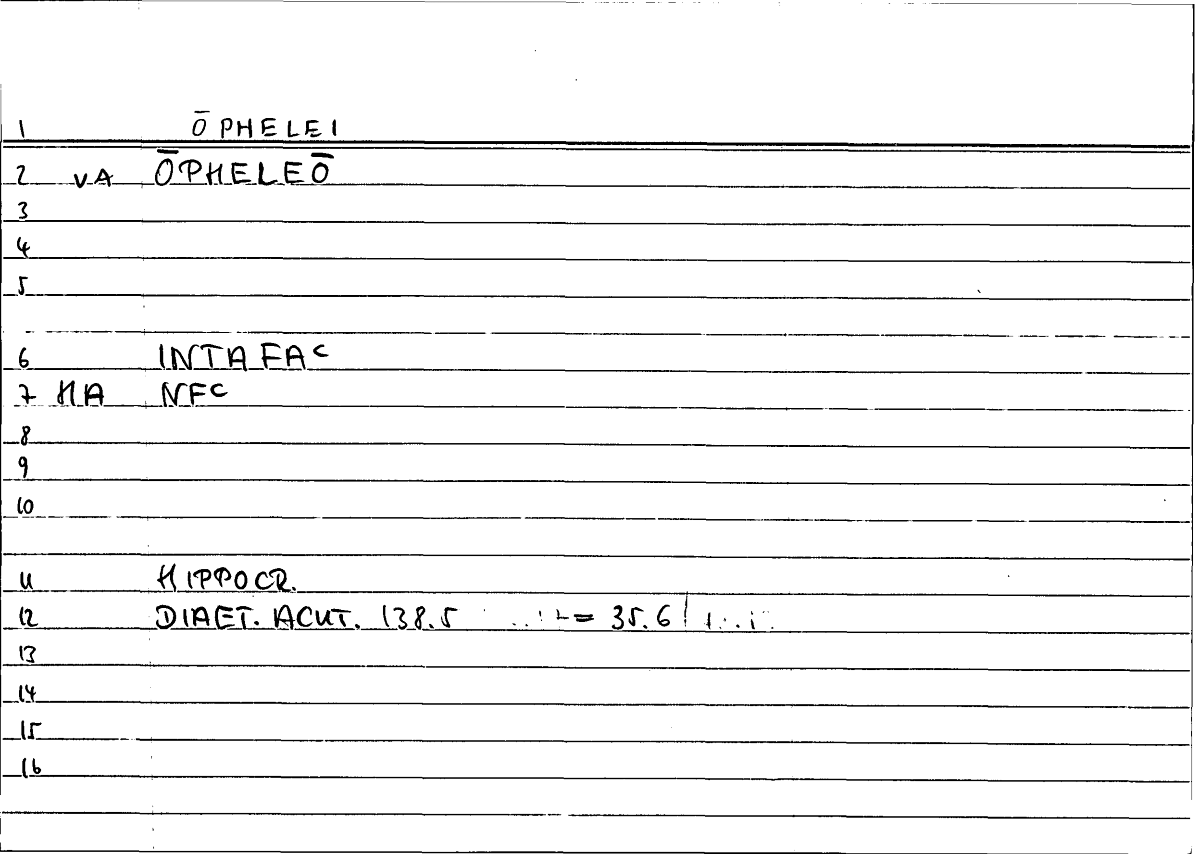 1 ŌPHELEI
2 VA ŌPHELEŌ
3
4
5
6 INTA FAC
7 HA NFC
8
9
10
11 HIPPOCR.
12 DIAET. ACUT. 138.5 = 35.6
13
14
15
16